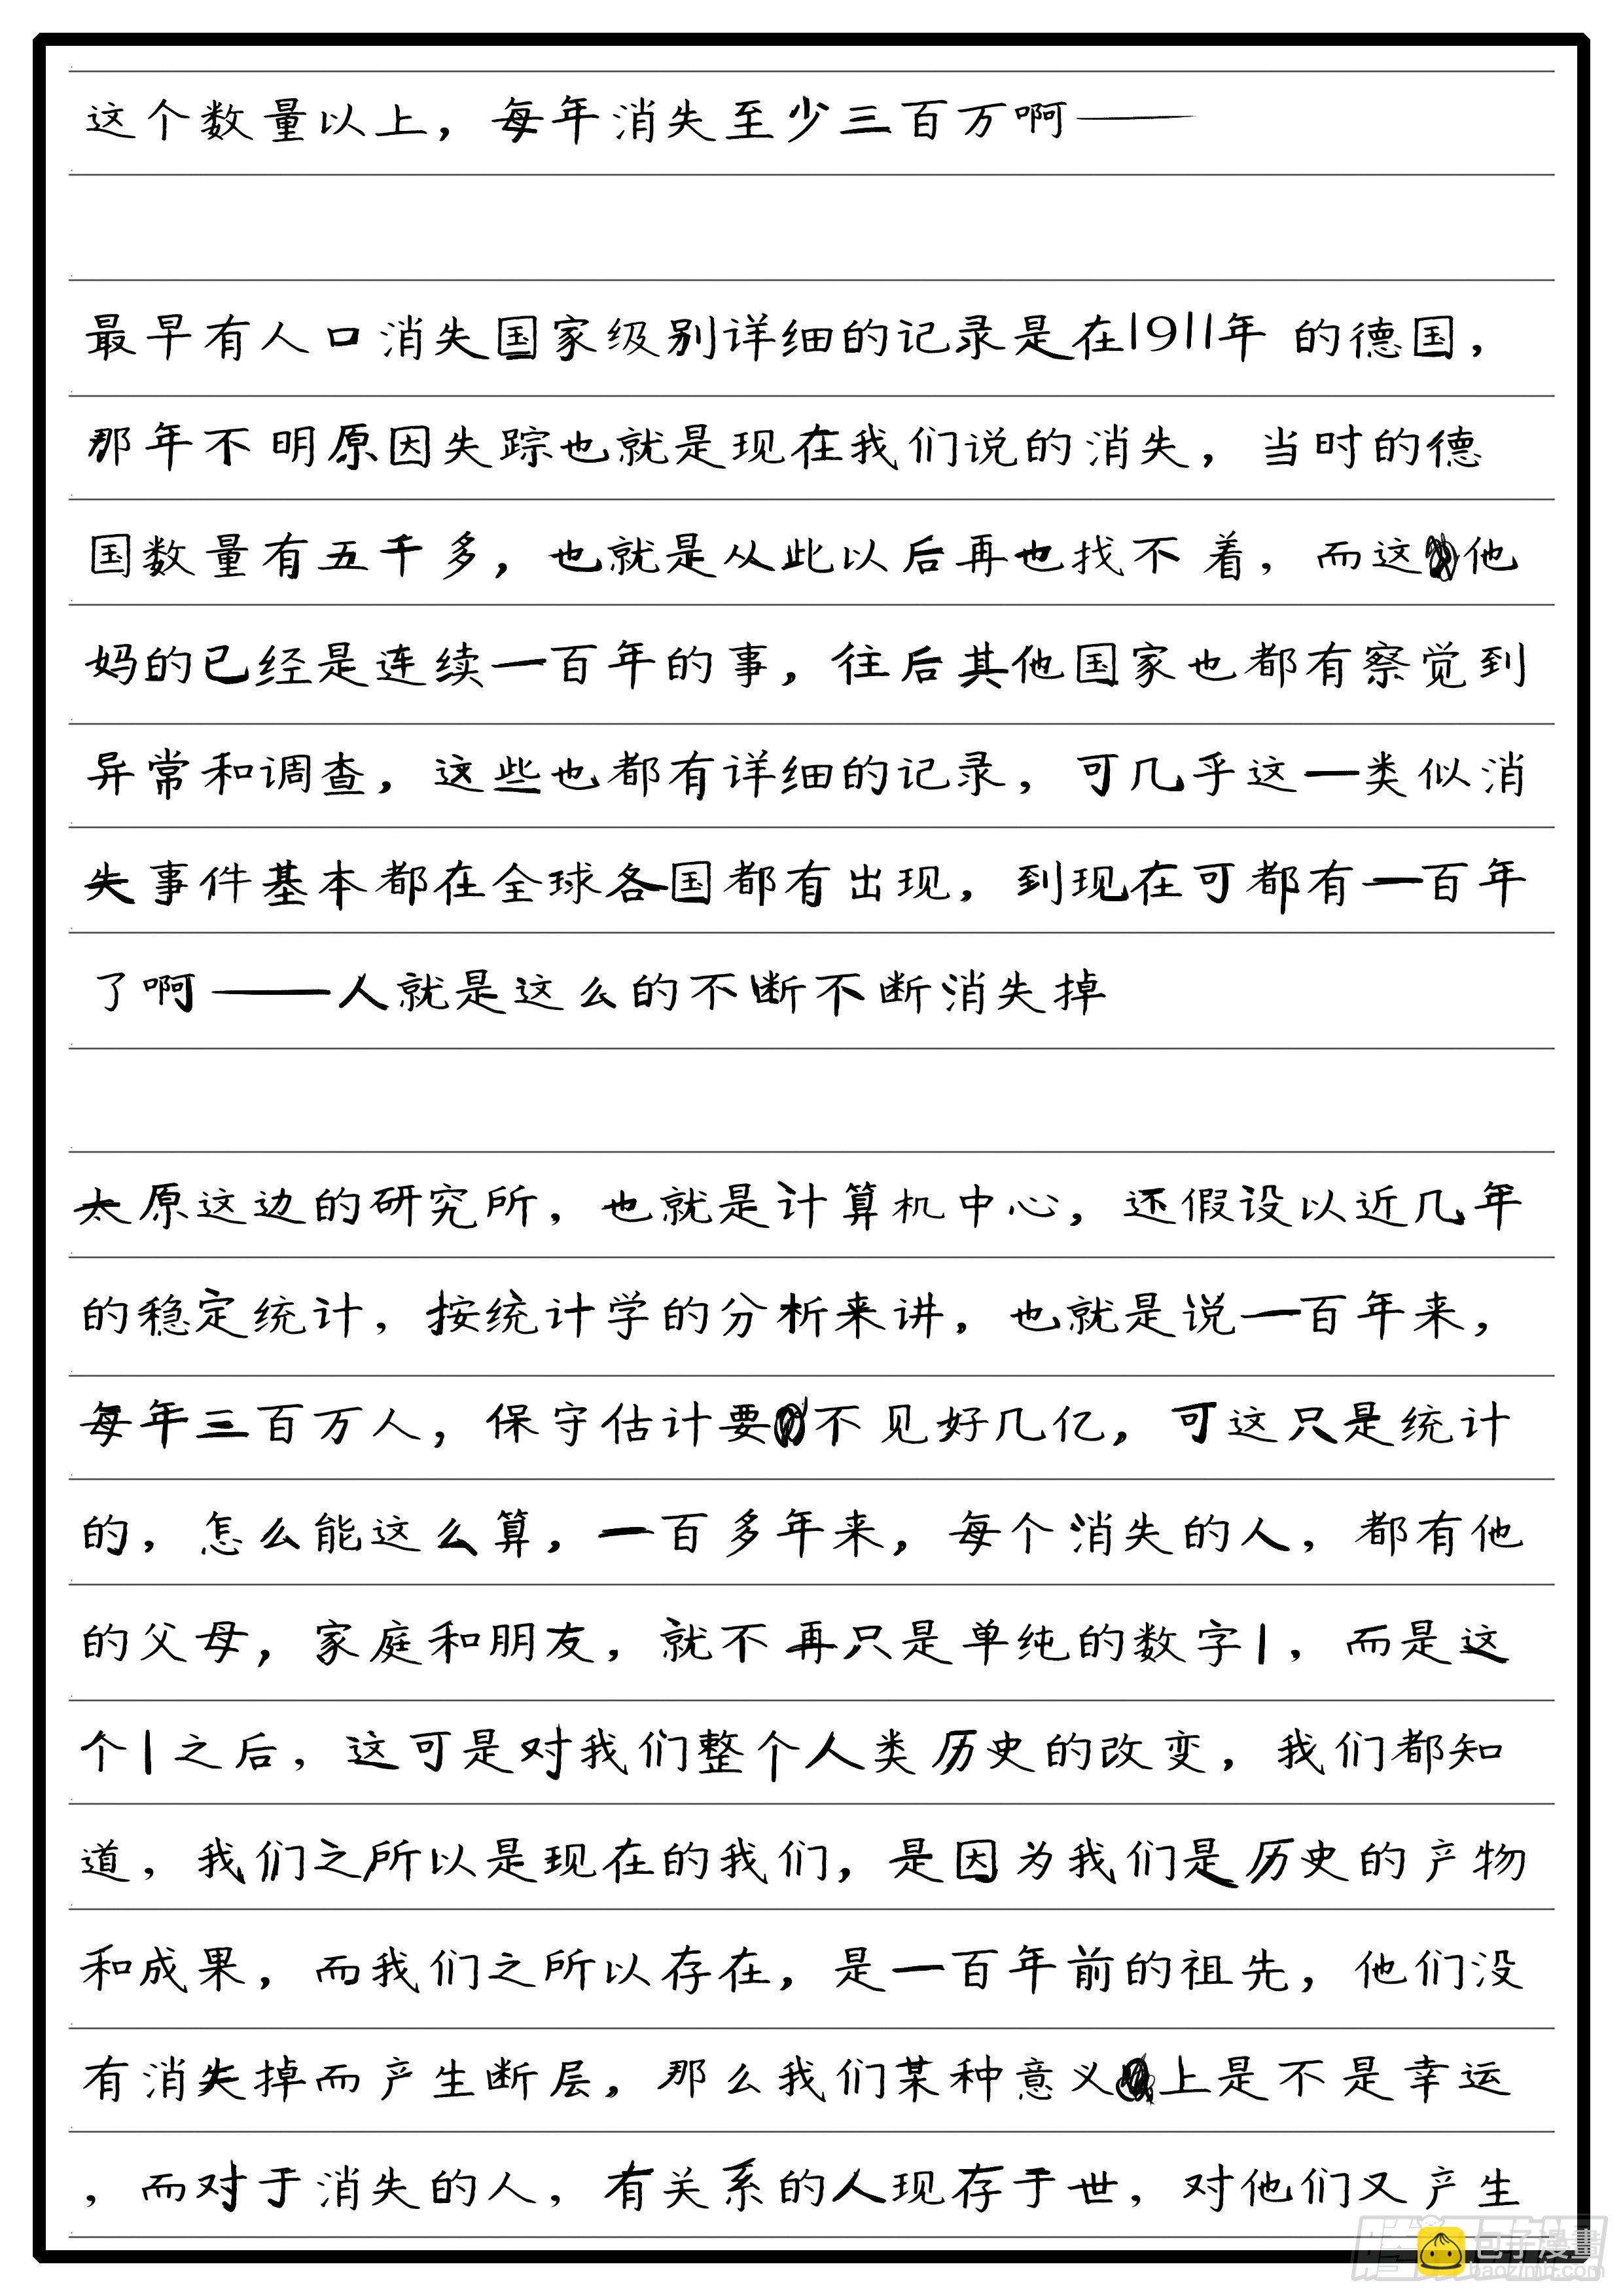 这个数量以上，每年消失至少三百万啊——
最早有人口消失国家级别详细的记录是在1911年的德国，
那年不明原因失踪也就是现在我们说的消失，当时的德
国数量有五千多，也就是从此以后再也找不着，而这他
妈的已经是连续一百年的事，往后其他国家也都有察觉到
异常和调查，这些也都有详细的记录，可几乎这一类似消
失事件基本都在全球各国都有出现，到现在可都有一百年
了啊——人就是这么的不断不断消失掉
太原这边的研究所，也就是计算机中心，还假设以近几年
的稳定统计，按统计学的分析来讲，也就是说一百年来，
每年三百万人，保守估计要不见好几亿，可这只是统计
的，怎么能这么算，一百多年来，每个消失的人，都有他
的父母，家庭和朋友，就不再只是单纯的数字1，而是这
个1之后，这可是对我们整个人类历史的改变，我们都知
道，我们之所以是现在的我们，是因为我们是历史的产物
和成果，而我们之所以存在，是一百年前的祖先，他们没
有消失掉而产生断层，那么我们某种意义上是不是幸运
，而对于消失的人，有关系的人现存于世，对他们又产生
包子漫畫
baozimh.com